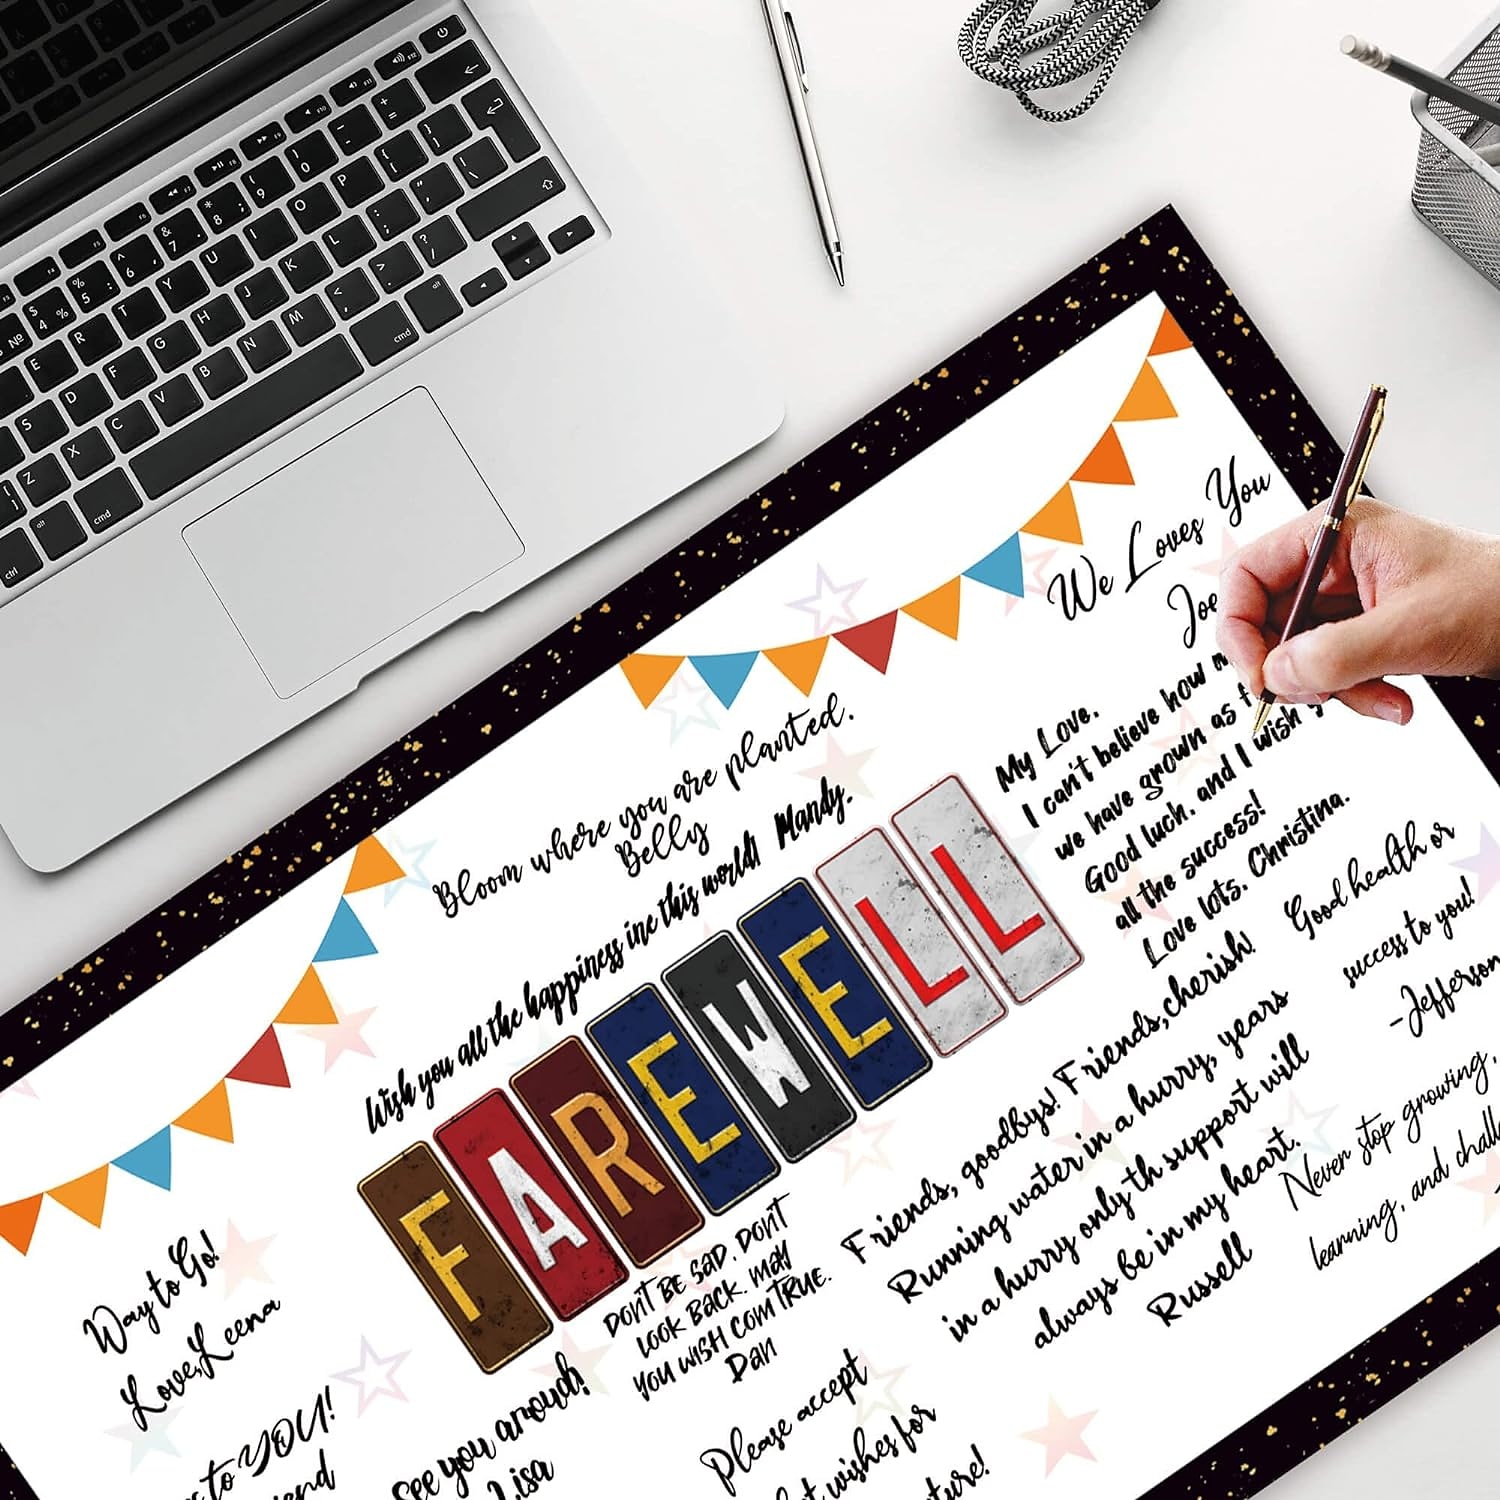 We Loves You
Joe
Bloom where you are planted.
Belly
Wish you all the happiness inc this world! Mandy.
My Love,
I can't believe how
we have grown as
Good luck, and I wish
all the success!
Love lots. Christina.
FAREWELL
Good health or
success to you!
-Jefferson
Friends, goodbys! Friends,cherish!
Running water in a hurry, years
in a hurry only th support will
always be in my heart.
Russell
Never stop growing,
learning, and
DON'T BE SAD. DON'T
LOOK BACK. MAY
YOU WISH COM TRUE.
Dan
Way to Go!
Love,Leena
to YOU!
See you aroud!
Lisa
Please accept
wishes for